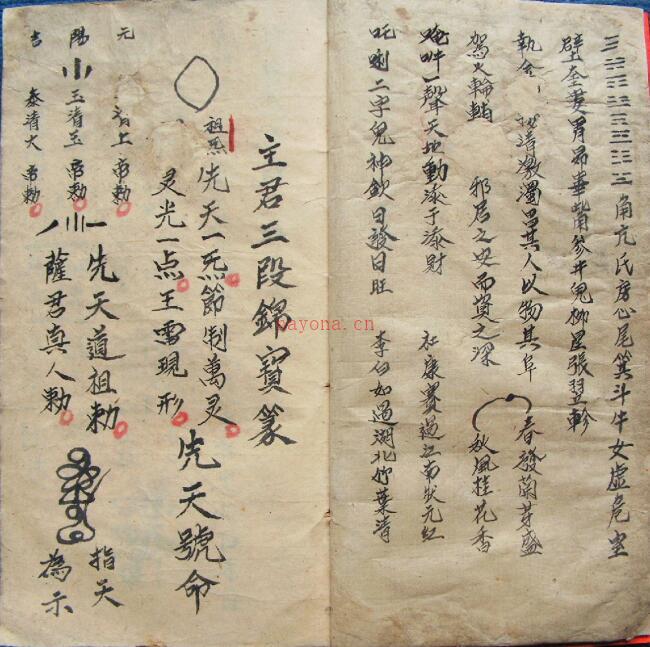 角亢氏房心尾箕斗牛女虛危室
壁奎婁胃昴畢觜參井鬼柳星張翌軫
執 激濁 其人以物其阜
春發蘭芽盛
駕火輪 邪居之安而資之深
秋風桂花香
唵吽一聲天地動添子添財
杜康賽過江南狀元紅
吒唎二字鬼神欽日發日旺
李白如過湖北竹葉清
主君三段錦寶篆
祖炁
先天一炁節制萬灵
灵光一点王灵現形
先天號命
元陽吉
上帝勅
玉清玉帝勅
泰清大帝勅
先天道祖勅
薩君真人勅
指天
為示
nayona.cn